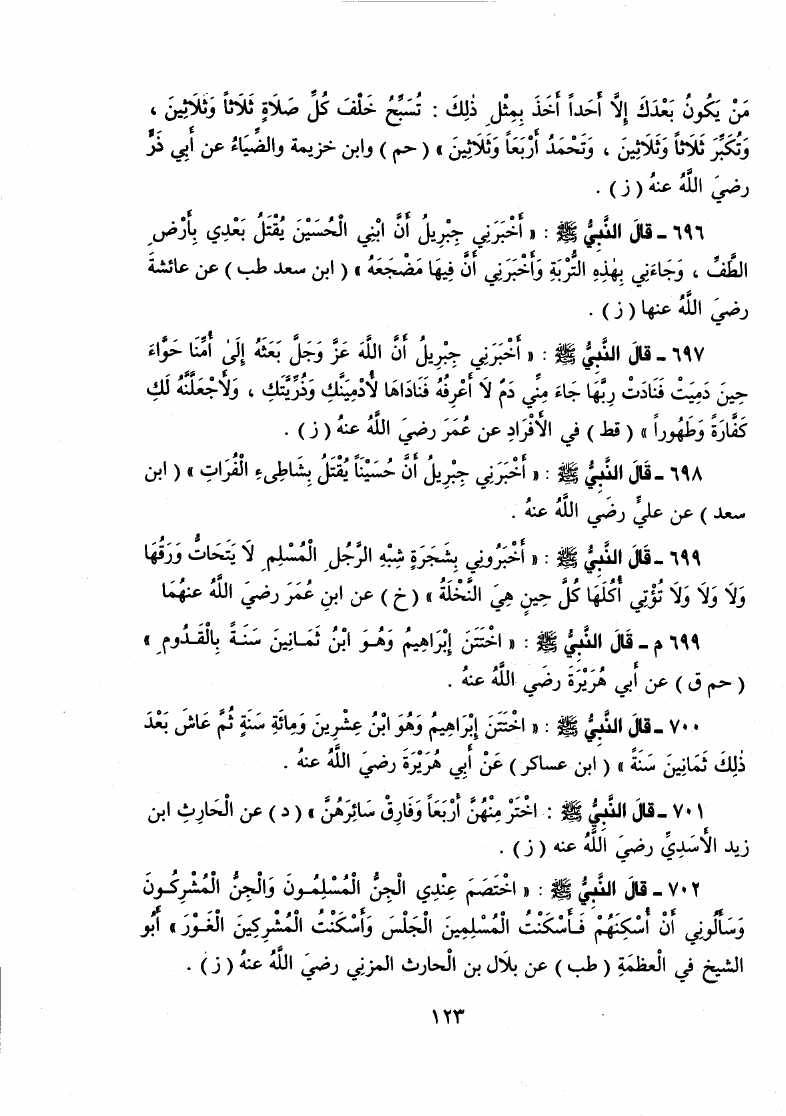 مَنْ يَكُونُ بَعْدَكَ إِلَّا أَحَداً أَخَذَ بِمِثْلِ ذٰلِكَ : تُسَبِّحُ خَلْفَ كُلِّ صَلَاةٍ ثَلَاثاً وَثَلَاثِينَ ،
وَتُكَبِّرُ ثَلَاثاً وَثَلَاثِينَ ، وَتَحْمَدُ أَرْبَعاً وَثَلَاثِينَ » ( حم ) وابن خزيمة والضِّيَاءُ عن أبي ذَرٍّ
رضيَ اللَّهُ عنهُ ( ز ) .
٦٩٦ - قالَ النَّبِيُّ ﷺ : « أَخْبَرَنِي جِبْرِيلُ أَنَّ ابْنِي الْحُسَيْنَ يُقْتَلُ بَعْدِي بِأَرْضِ
الطَّفِّ ، وَجَاءَنِي بِهٰذِهِ التُّرْبَةِ وَأَخْبَرَنِي أَنَّ فِيهَا مَضْجَعَهُ » ( ابن سعد طب ) عن عائشة
رضيَ اللَّهُ عنها ( ز ) .
٦٩٧ - قالَ النَّبِيُّ ﷺ : « أَخْبَرَنِي جِبْرِيلُ أَنَّ اللَّهَ عَزَّ وَجَلَّ بَعَثَهُ إِلَىٰ أُمِّنَا حَوَّاءَ
حِينَ دَمِيَتْ فَنَادَتْ رَبَّهَا جَاءَ مِنِّي دَمٌ لَا أَعْرِفُهُ فَنَادَاهَا لَأُدْمِيَنَّكِ وَذُرِّيَّتَكِ ، وَلَأَجْعَلَنَّهُ لَكِ
كَفَّارَةً وَطَهُوراً » ( قط ) في الأَفْرَادِ عن عُمَرَ رضيَ اللَّهُ عنهُ ( ز ) .
٦٩٨ - قالَ النَّبِيُّ ﷺ : « أَخْبَرَنِي جِبْرِيلُ أَنَّ حُسَيْناً يُقْتَلُ بِشَاطِىءِ الْفُرَاتِ » ( ابن
سعد ) عن عليٍّ رضيَ اللَّهُ عنهُ .
٦٩٩ - قالَ النَّبِيُّ ﷺ : « أَخْبِرُونِي بِشَجَرَةٍ شِبْهِ الرَّجُلِ الْمُسْلِمِ لَا يَتَحَاتُّ وَرَقُهَا
وَلَا وَلَا وَلَا تُؤْتِي أُكُلَهَا كُلَّ حِينٍ هِيَ النَّخْلَةُ » ( خ ) عن ابنِ عُمَرَ رضيَ اللَّهُ عنهُمَا
٦٩٩ م - قالَ النَّبِيُّ ﷺ : « اخْتَتَنَ إِبْرَاهِيمُ وَهُوَ ابْنُ ثَمَانِينَ سَنَةً بِالْقَدُومِ »
( حم ق ) عن أبي هُرَيْرَةَ رضيَ اللَّهُ عنهُ .
٧٠٠ - قالَ النَّبِيُّ ﷺ : « اخْتَتَنَ إِبْرَاهِيمُ وَهُوَ ابْنُ عِشْرِينَ وَمِائَةِ سَنَةٍ ثُمَّ عَاشَ بَعْدَ
ذٰلِكَ ثَمَانِينَ سَنَةً » ( ابن عساكر ) عَنْ أَبِي هُرَيْرَةَ رضيَ اللَّهُ عنهُ .
٧٠١ - قالَ النَّبِيُّ ﷺ : اخْتَرْ مِنْهُنَّ أَرْبَعاً وَفَارِقْ سَائِرَهُنَّ » ( د ) عن الْحَارِثِ ابن
زيد الأَسَدِيِّ رضيَ اللَّهُ عنه ( ز ) .
٧٠٢ - قالَ النَّبِيُّ ﷺ : « اخْتَصَمَ عِنْدِي الْجِنُّ الْمُسْلِمُونَ وَالْجِنُّ الْمُشْرِكُونَ
وَسَأَلُونِي أَنْ أُسْكِنَهُمْ فَأَسْكَنْتُ الْمُسْلِمِينَ الْجَلْسَ وَأَسْكَنْتُ الْمُشْرِكِينَ الْغَوْرَ » أَبُو
الشيخ في الْعظَمَةِ ( طب ) عن بلالِ بن الْحارث المزني رضيَ اللَّهُ عنهُ ( ز ) .
١٢٣